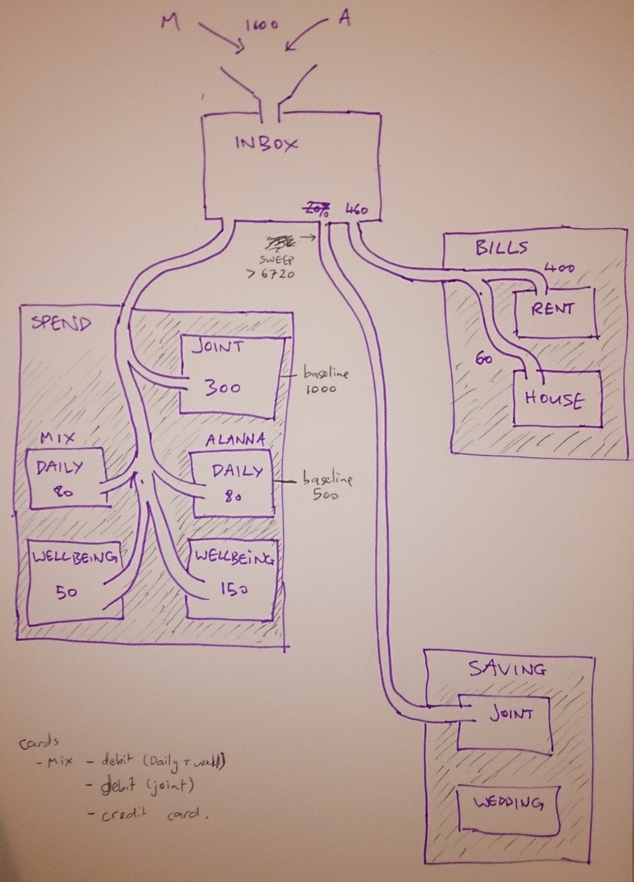 M 1600 A
INBOX
20% 460
SWEEP
> 6720
BILLS
400
RENT
60
HOUSE
SPEND
JOINT
300
baseline
1000
MIX
DAILY
80
ALANNA
DAILY
80
baseline
500
WELLBEING
50
WELLBEING
150
SAVING
JOINT
WEDDING
cards
- Mix - debit (Daily + well)
- debit (joint)
- credit card.